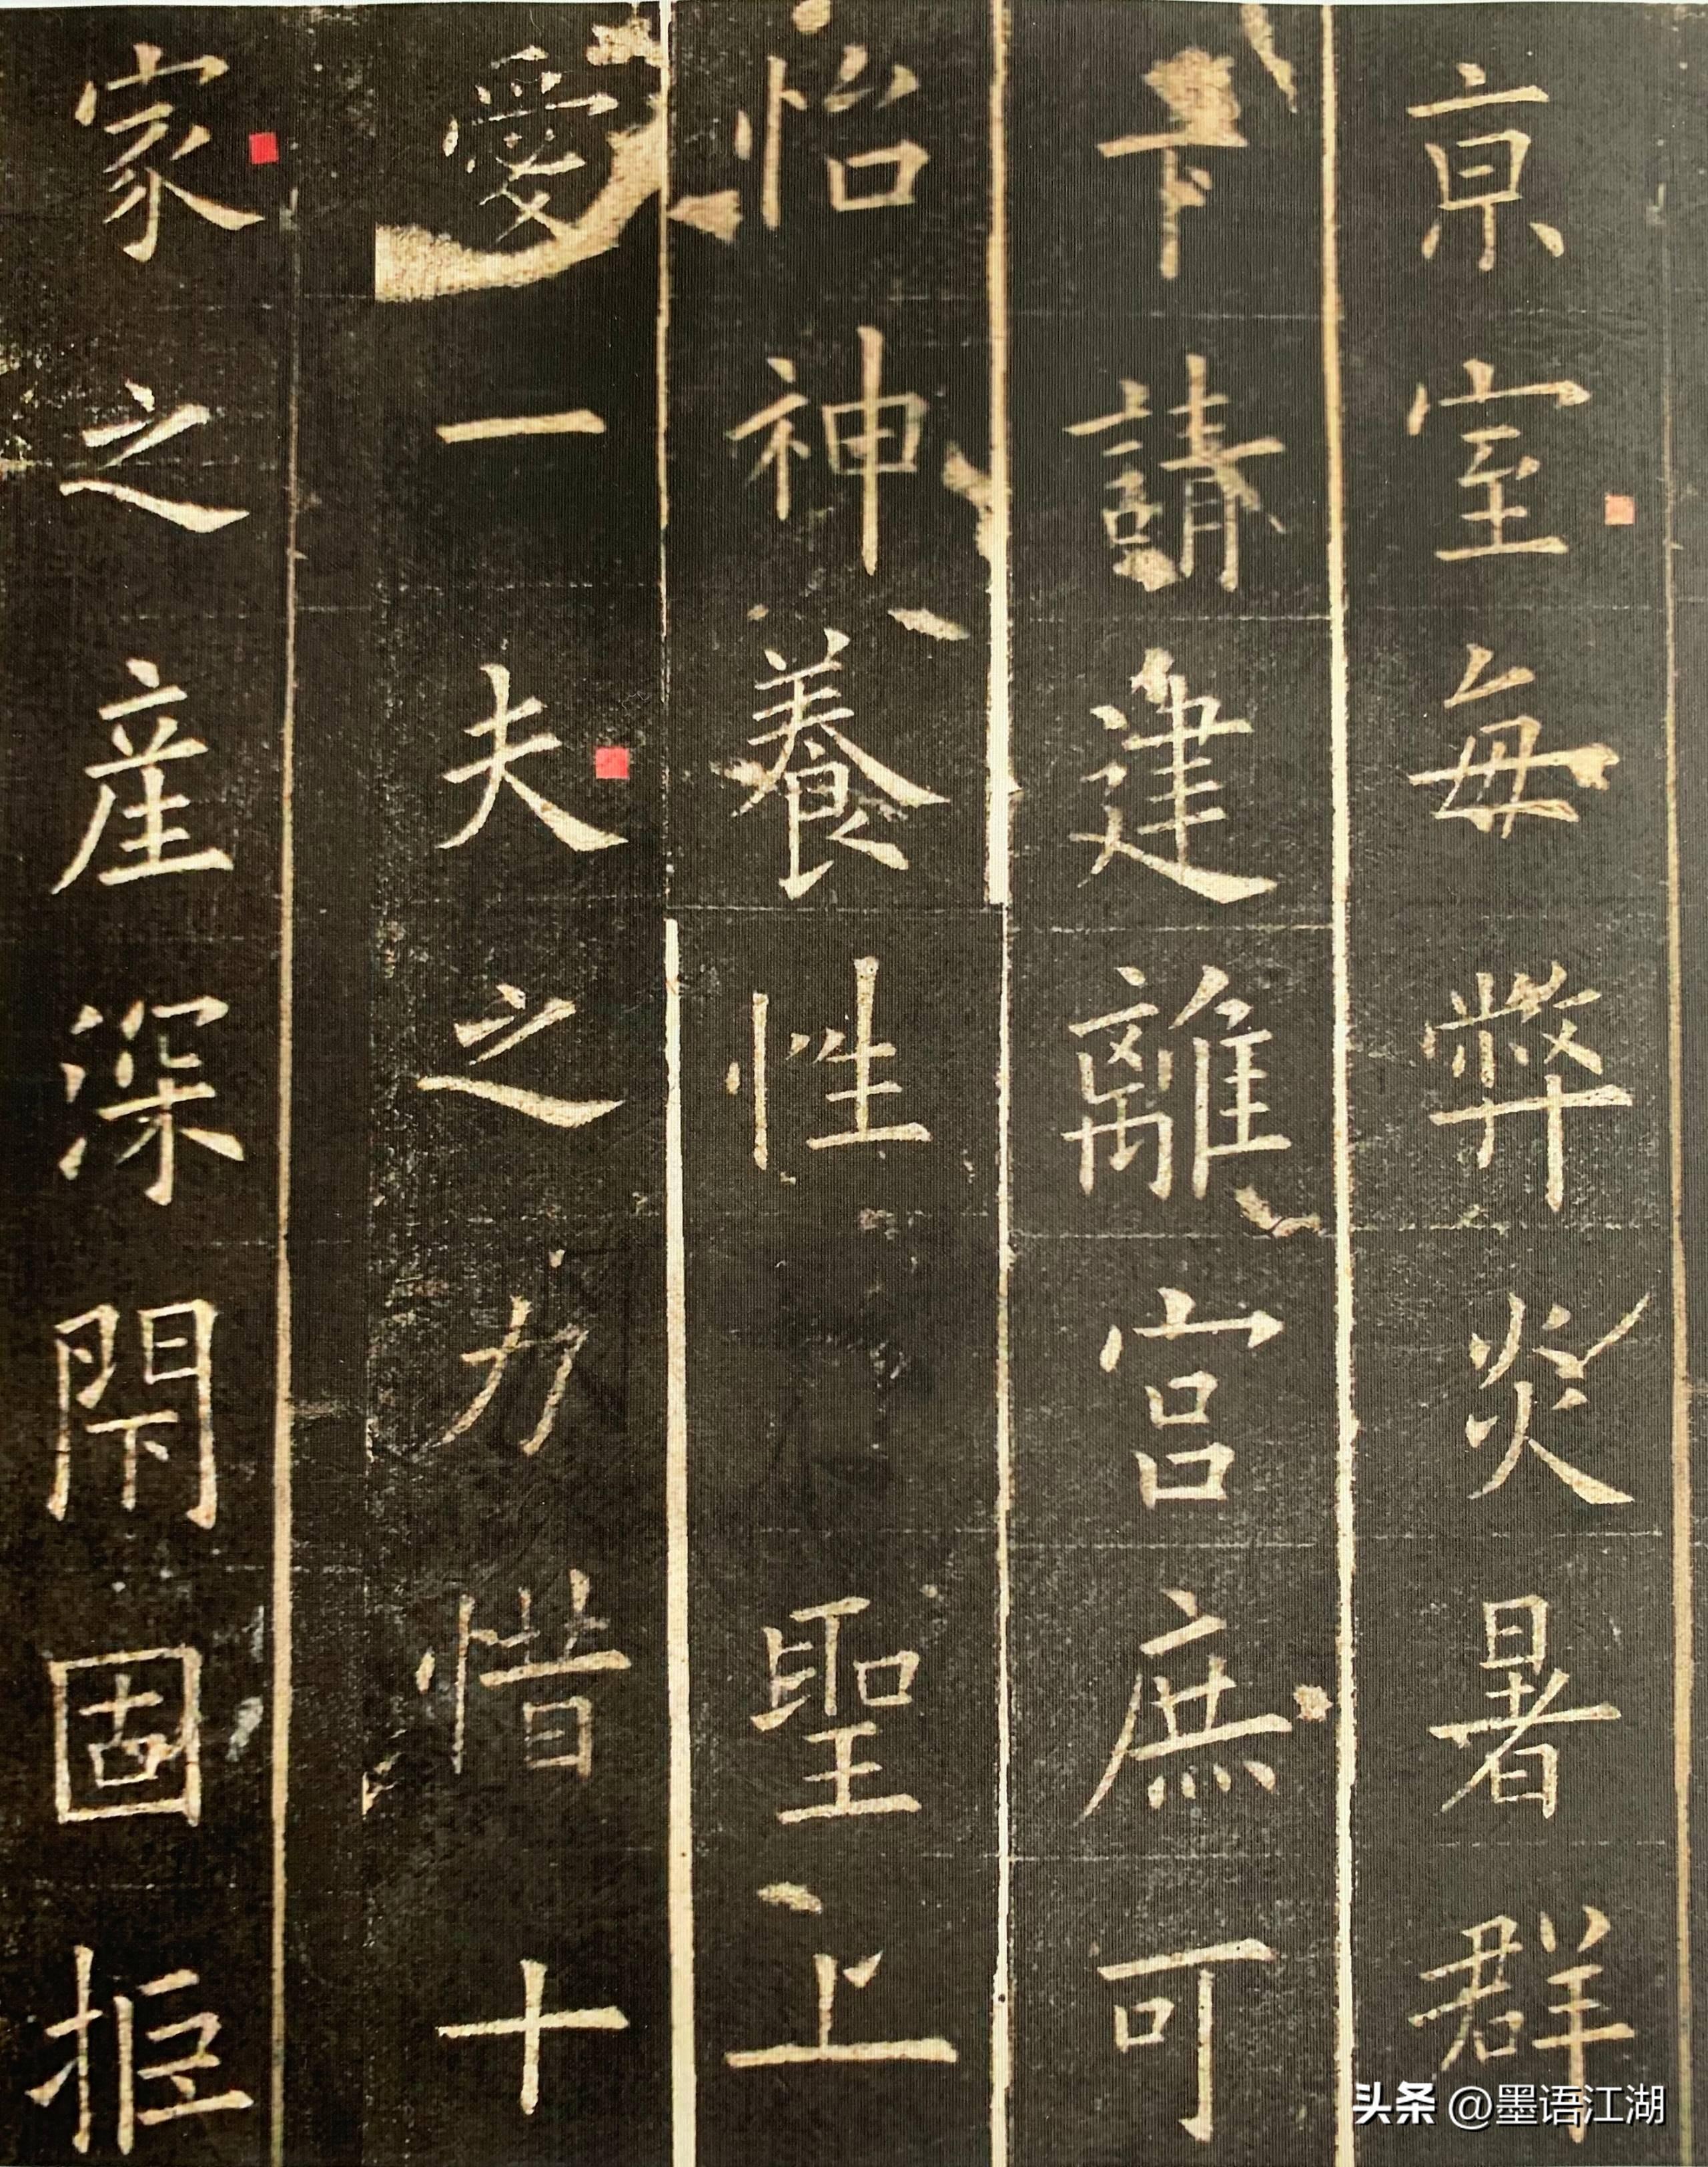 京室每弊炎暑群
下請建離宮庶可
怡神養性聖上
愛一夫之力惜十
家之產深閇固拒
头条 @墨语江湖